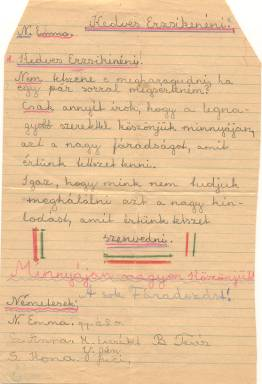 N. Emma. Kedves Erzsikenéni!
Kedves Erzsikenéni.
Nem tetszene e megharagudni, ha
egy pár sorral megsérteném?
Csak annyit irok, hogy a legna-
gyobb szeretettel köszönjük minnyájan,
azt a nagy fáradságot, amit
értünk tetszet tenni.
Igaz, hogy mink nem tudjuk
meghálálni azt a nagy kin-
lodást, amit értünk tetszet
szenvedni.
Minnyájan nagyon Köszönjük!
A sok Fáradságot!
Németesek:
N. Emma.
Anna. B. Teréz
S. Ilona.